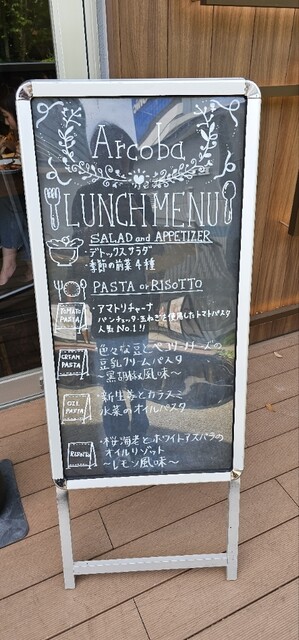 Arcoba
LUNCH MENU
SALAD and APPETIZER
・デトックスサラダ
・季節の前菜4種
PASTA or RISOTTO
TOMATO
PASTA
・アマトリチャーナ
パンチェッタ・玉ねぎを使用したトマトパスタ
人気No.1!!
CREAM
PASTA
色々な豆とペコリーノチーズの
豆乳クリームパスタ
～黒胡椒風味～
OIL
PASTA
・新生姜とカラスミ
水菜のオイルパスタ
RISOTTO
・桜海老とホワイトアスパラの
オイルリゾット
～レモン風味～